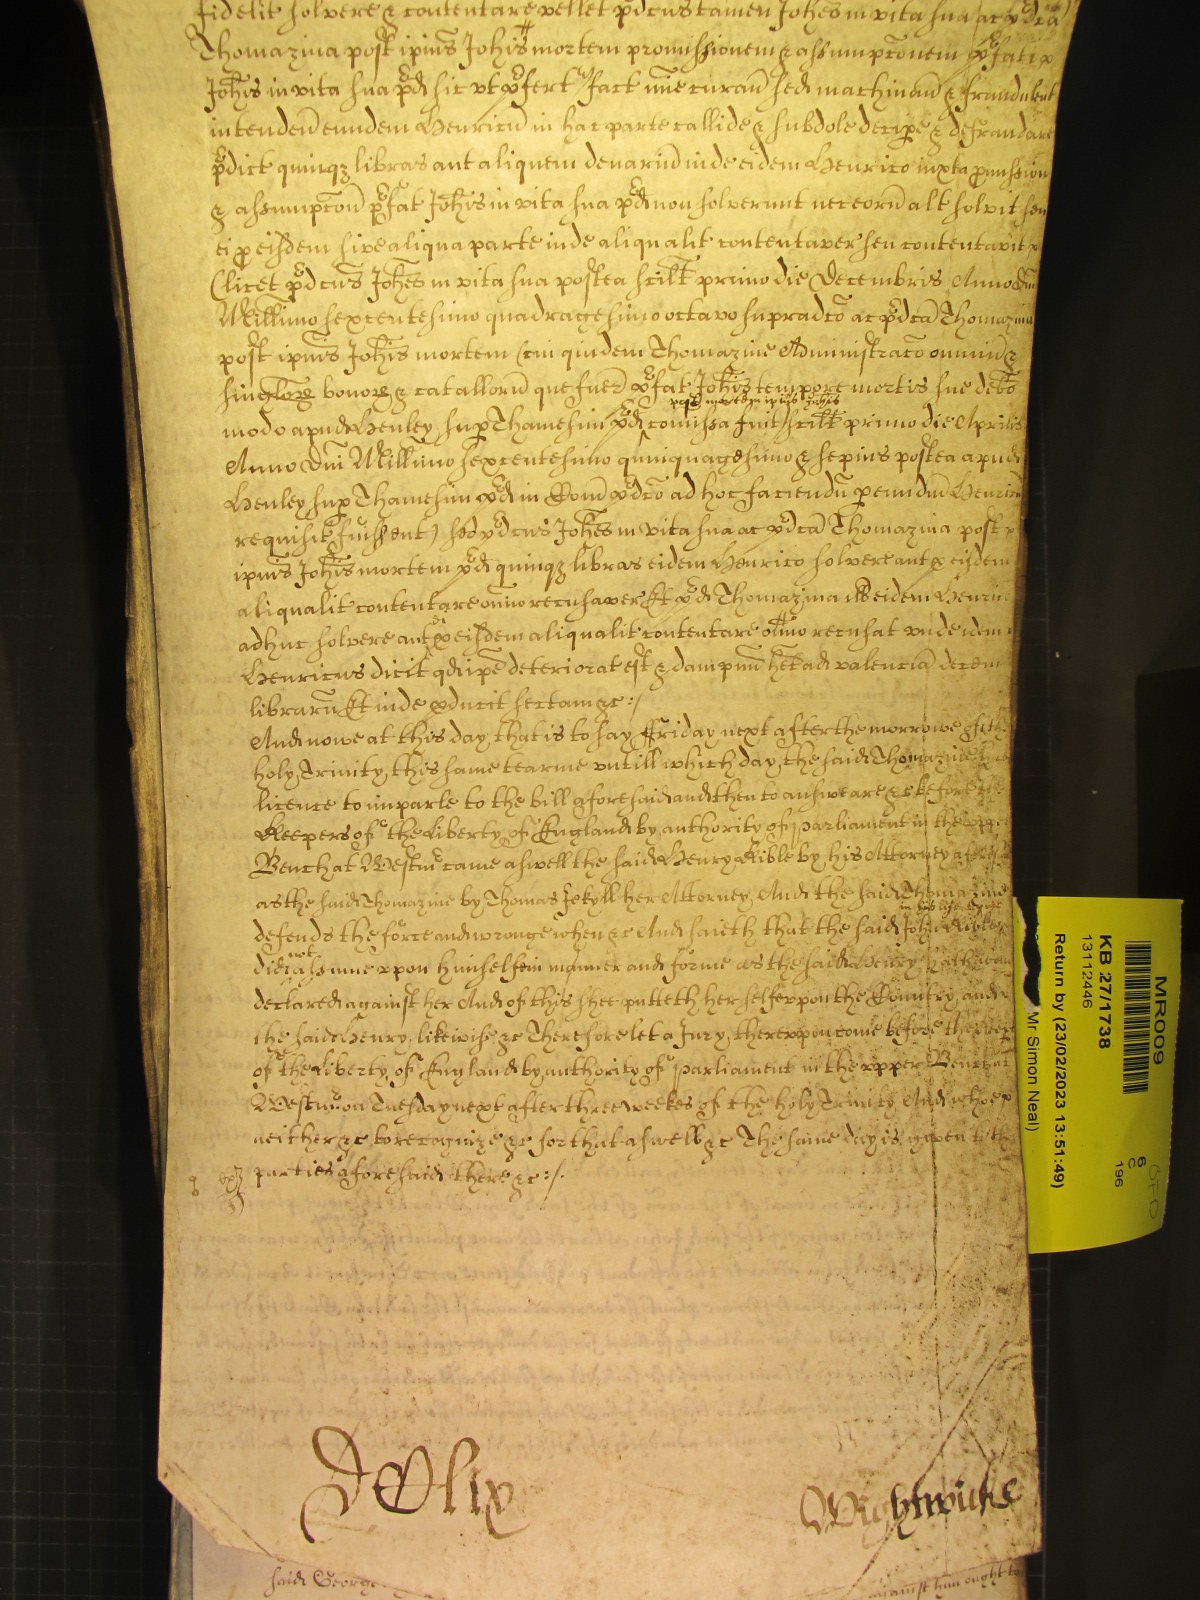 fidelit solvere & contentare vellet p̃dcus tamen Joħes in vita sua ac p̃dcã
Thomazina post ipius Joħis mortem promissionem & assumpc̃onem p̃fati
Joħis in vita sua p̃d sic vt p̃fert fact mi͠e curan̄ sed machinan̄ & fraudulent
intenden̄ eundem Henricū in hac parte callide & subdole decipe & defraudare
p̃dict quinqz libras aut aliquem denariū inde eidem Henrico iuxta p̱mission
& assumpc̃on p̃fat Joħis in vita sua p̃d non solverunt nec eorū alt solvit seu
ei p̱ eisdem sive aliqua parte inde aliqualit contentaver seu contentavit
(licet p̃dcus Joħes in vita sua postea scilt primo die Decembris Anno Dm̄
Millimo sexcentesimo quadragesimo octavo supradc̃o ac p̃dcã Thomazina
post ipius Joħis mortem (cui quidem Thomazine Administrac̃o omniū &
singlor̄ bonor̄ & catallorū que fuer̄ p̃fat Joħis tempore mortis sue debt̃o
post mortem ipius Joħis
modo apud Henley sup Thamesim p̃d com̄issa fuit) scilt primo die Aprilis
Anno Dn̄i Millimo sexcentesimo quinquagesimo & sepius postea apud
Henley sup Thamesim p̃d in Com̄ p̃dc̃o ad hoc faciend̄ p eundm̄ Henricū
requisit fuissent) sed p̃dcus Joħes in vita sua ac p̃dcã Thomazina post
ipius Joħis mortem p̃d quinqz libras eidem Henrico solvere aut p̱ eisdem
aliqualit contentare om̄io recusaver Et p̃d Thomazina ill eidem Henrico
adhuc solvere aut p̱ eisdem aliqualit contentare om̄io recusat vnde idem
Henricus dicit qd ip̄e deteriorat est & dampnū het ad valenciã decem
librarū Et inde p̱ducit sectam &c :/
And nowe at this day that is to say ffriday next after the morrowe of the
holy Trinity this same tearme vntill which day the said Thomazine had
licence to imparle to the bill aforesaid and then to answeare &c before the
Keepers of the Liberty of England by authority of parliament in the vpper
Bench at Westmr came aswell the said Henry Kible by his Attorney aforesaid
as the said Thomazine by Thomas Jekyll her Attorney And the said Thomazine
in his life tyme
defends the force and wronge when &c And saieth that the said John Kible
not
did assume vpon himselfe in manner and forme as the said Henry hath above
declared against her And of this shee putteth her selfe vpon the Country and
the said Henry likewise &c Therefore let a Jury therevpon come before the Keepers
of the Liberty of England by authority of parliament in the vpper Bench at
Westmr on Tuesday next after three weekes of the holy Trinity And who
neither &c to recognize &c for that aswell &c The same day is given to the
parties aforesaid there &c :/.
D Olix
Wightwicke
said George
against him ought to
MR009
KB 27/1738
13112446
Return by (23/02/2023 13:51:49)
Mr Simon Neal)
6
C
196